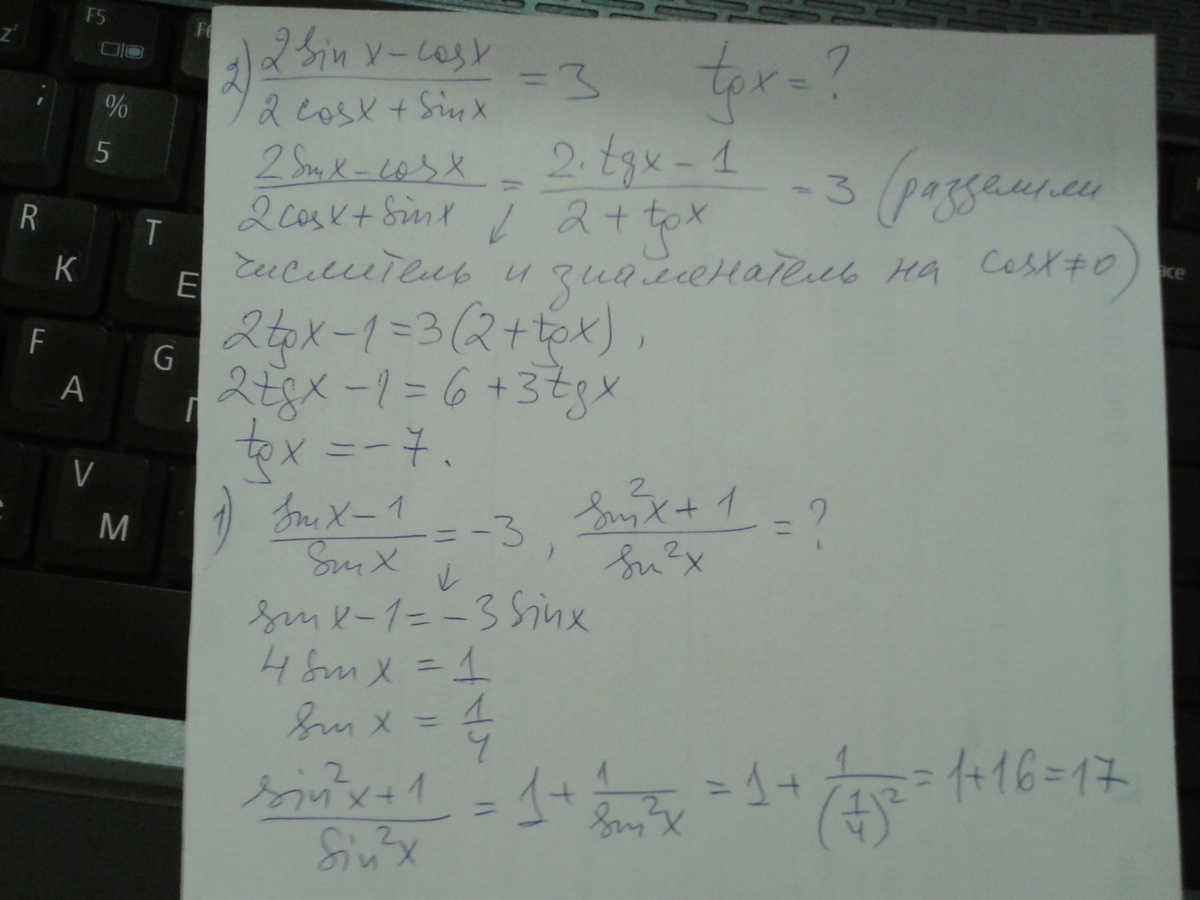 2) (2 sin x - cos x)/(2 cos x + sin x) = 3 tg x = ?
(2 sin x - cos x)/(2 cos x + sin x) = (2·tg x - 1)/(2 + tg x) = 3 (разделили
↓
числитель и знаменатель на cos x ≠ 0)
2 tg x - 1 = 3(2 + tg x),
2 tg x - 1 = 6 + 3 tg x
tg x = -7.
1) (sin x - 1)/(sin x) = -3, (sin²x + 1)/(sin²x) = ?
↓
sin x - 1 = -3 sin x
4 sin x = 1
sin x = 1/4
(sin²x + 1)/(sin²x) = 1 + 1/(sin²x) = 1 + 1/(1/4)² = 1 + 16 = 17
F5
%
5
;
R
К
T
Е
F
А
G
V
М